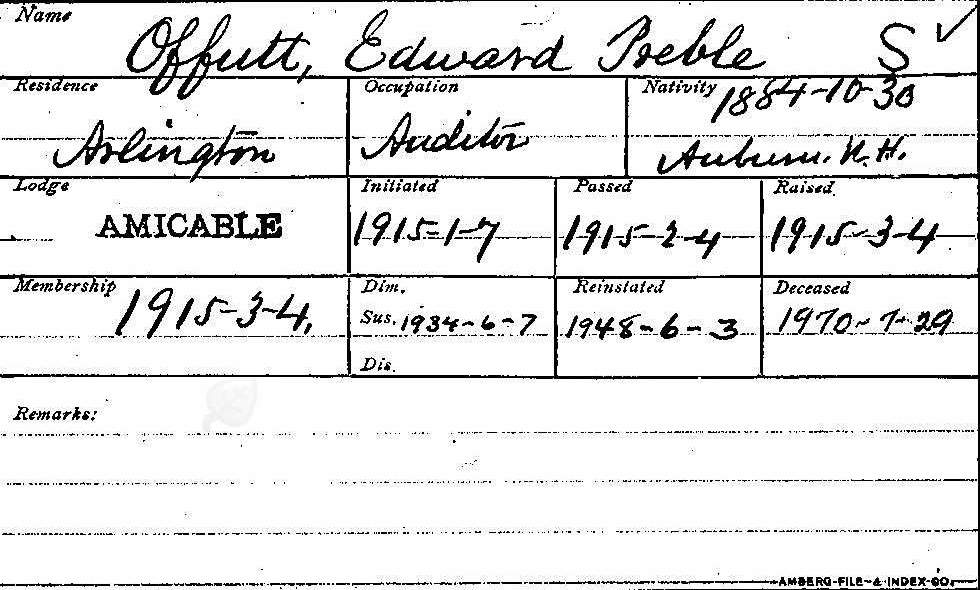 Name
Offutt, Edward Preble S ✓
Residence Occupation Nativity 1884-10-30
Arlington Auditor Auburn. N.H.
Lodge Initiated Passed Raised
AMICABLE 1915-1-7 1915-2-4 1915-3-4
Membership Dim. Reinstated Deceased
1915-3-4, Sus. 1934-6-7 1948-6-3 1970-7-29
Dis.
Remarks:
AMBERG-FILE & INDEX CO.